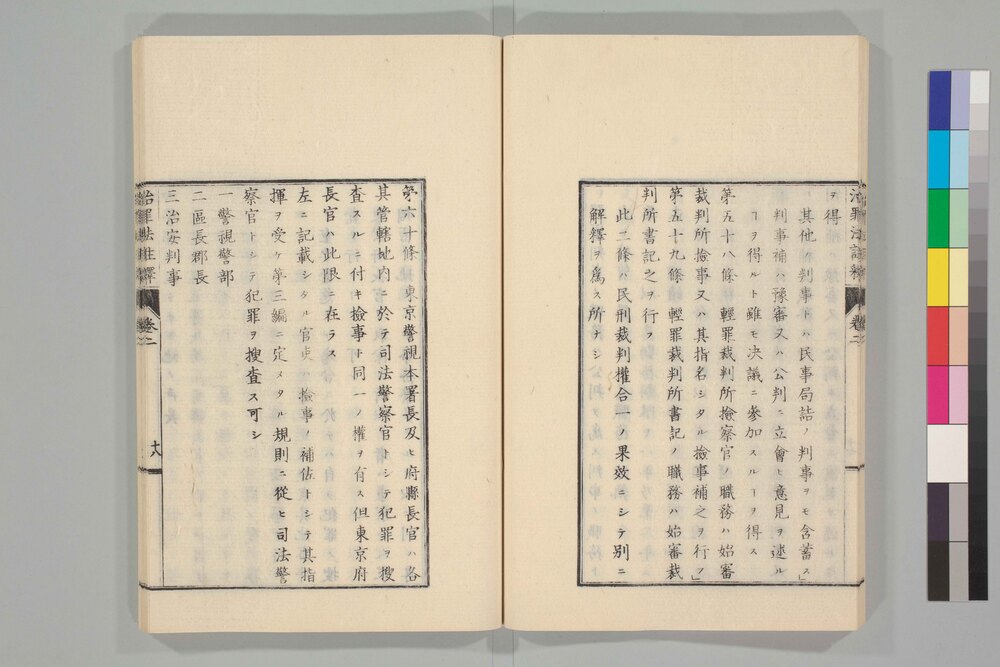 ヲ得
其他ノ判事トハ民事局詰ノ判事ヲモ含蓄ス」
判事補ハ豫審又ハ公判ニ立會ヒ意見ヲ述ル
ヿヲ得ルト雖モ決議ニ參加スルヿヲ得ス
第五十八條 輕罪裁判所撿察官ノ職務ハ始審
裁判所撿事又ハ其指名シタル撿事補之ヲ行フ」
第五十九條 輕罪裁判所書記ノ職務ハ始審裁
判所書記之ヲ行フ
此二條ハ民刑裁判權合一ノ果效ニシテ別ニ
解釋ヲ爲ス所ナシ
治罪法註釋 卷二
第六十條 東京警視本署長及ヒ府縣長官ハ各
其管轄地内ニ於テ司法警察官トシテ犯罪ヲ搜
査スルニ付キ撿事ト同一ノ權ヲ有ス但東京府
長官ハ此限ニ在ラス
左ニ記載シタル官吏ハ撿事ノ補佐トシテ其指
揮ヲ受ケ第三編ニ定メタル規則ニ從ヒ司法警
察官トシテ犯罪ヲ搜査ス可シ
一警視警部
二區長郡長
三治安判事
治罪法註釋 卷二